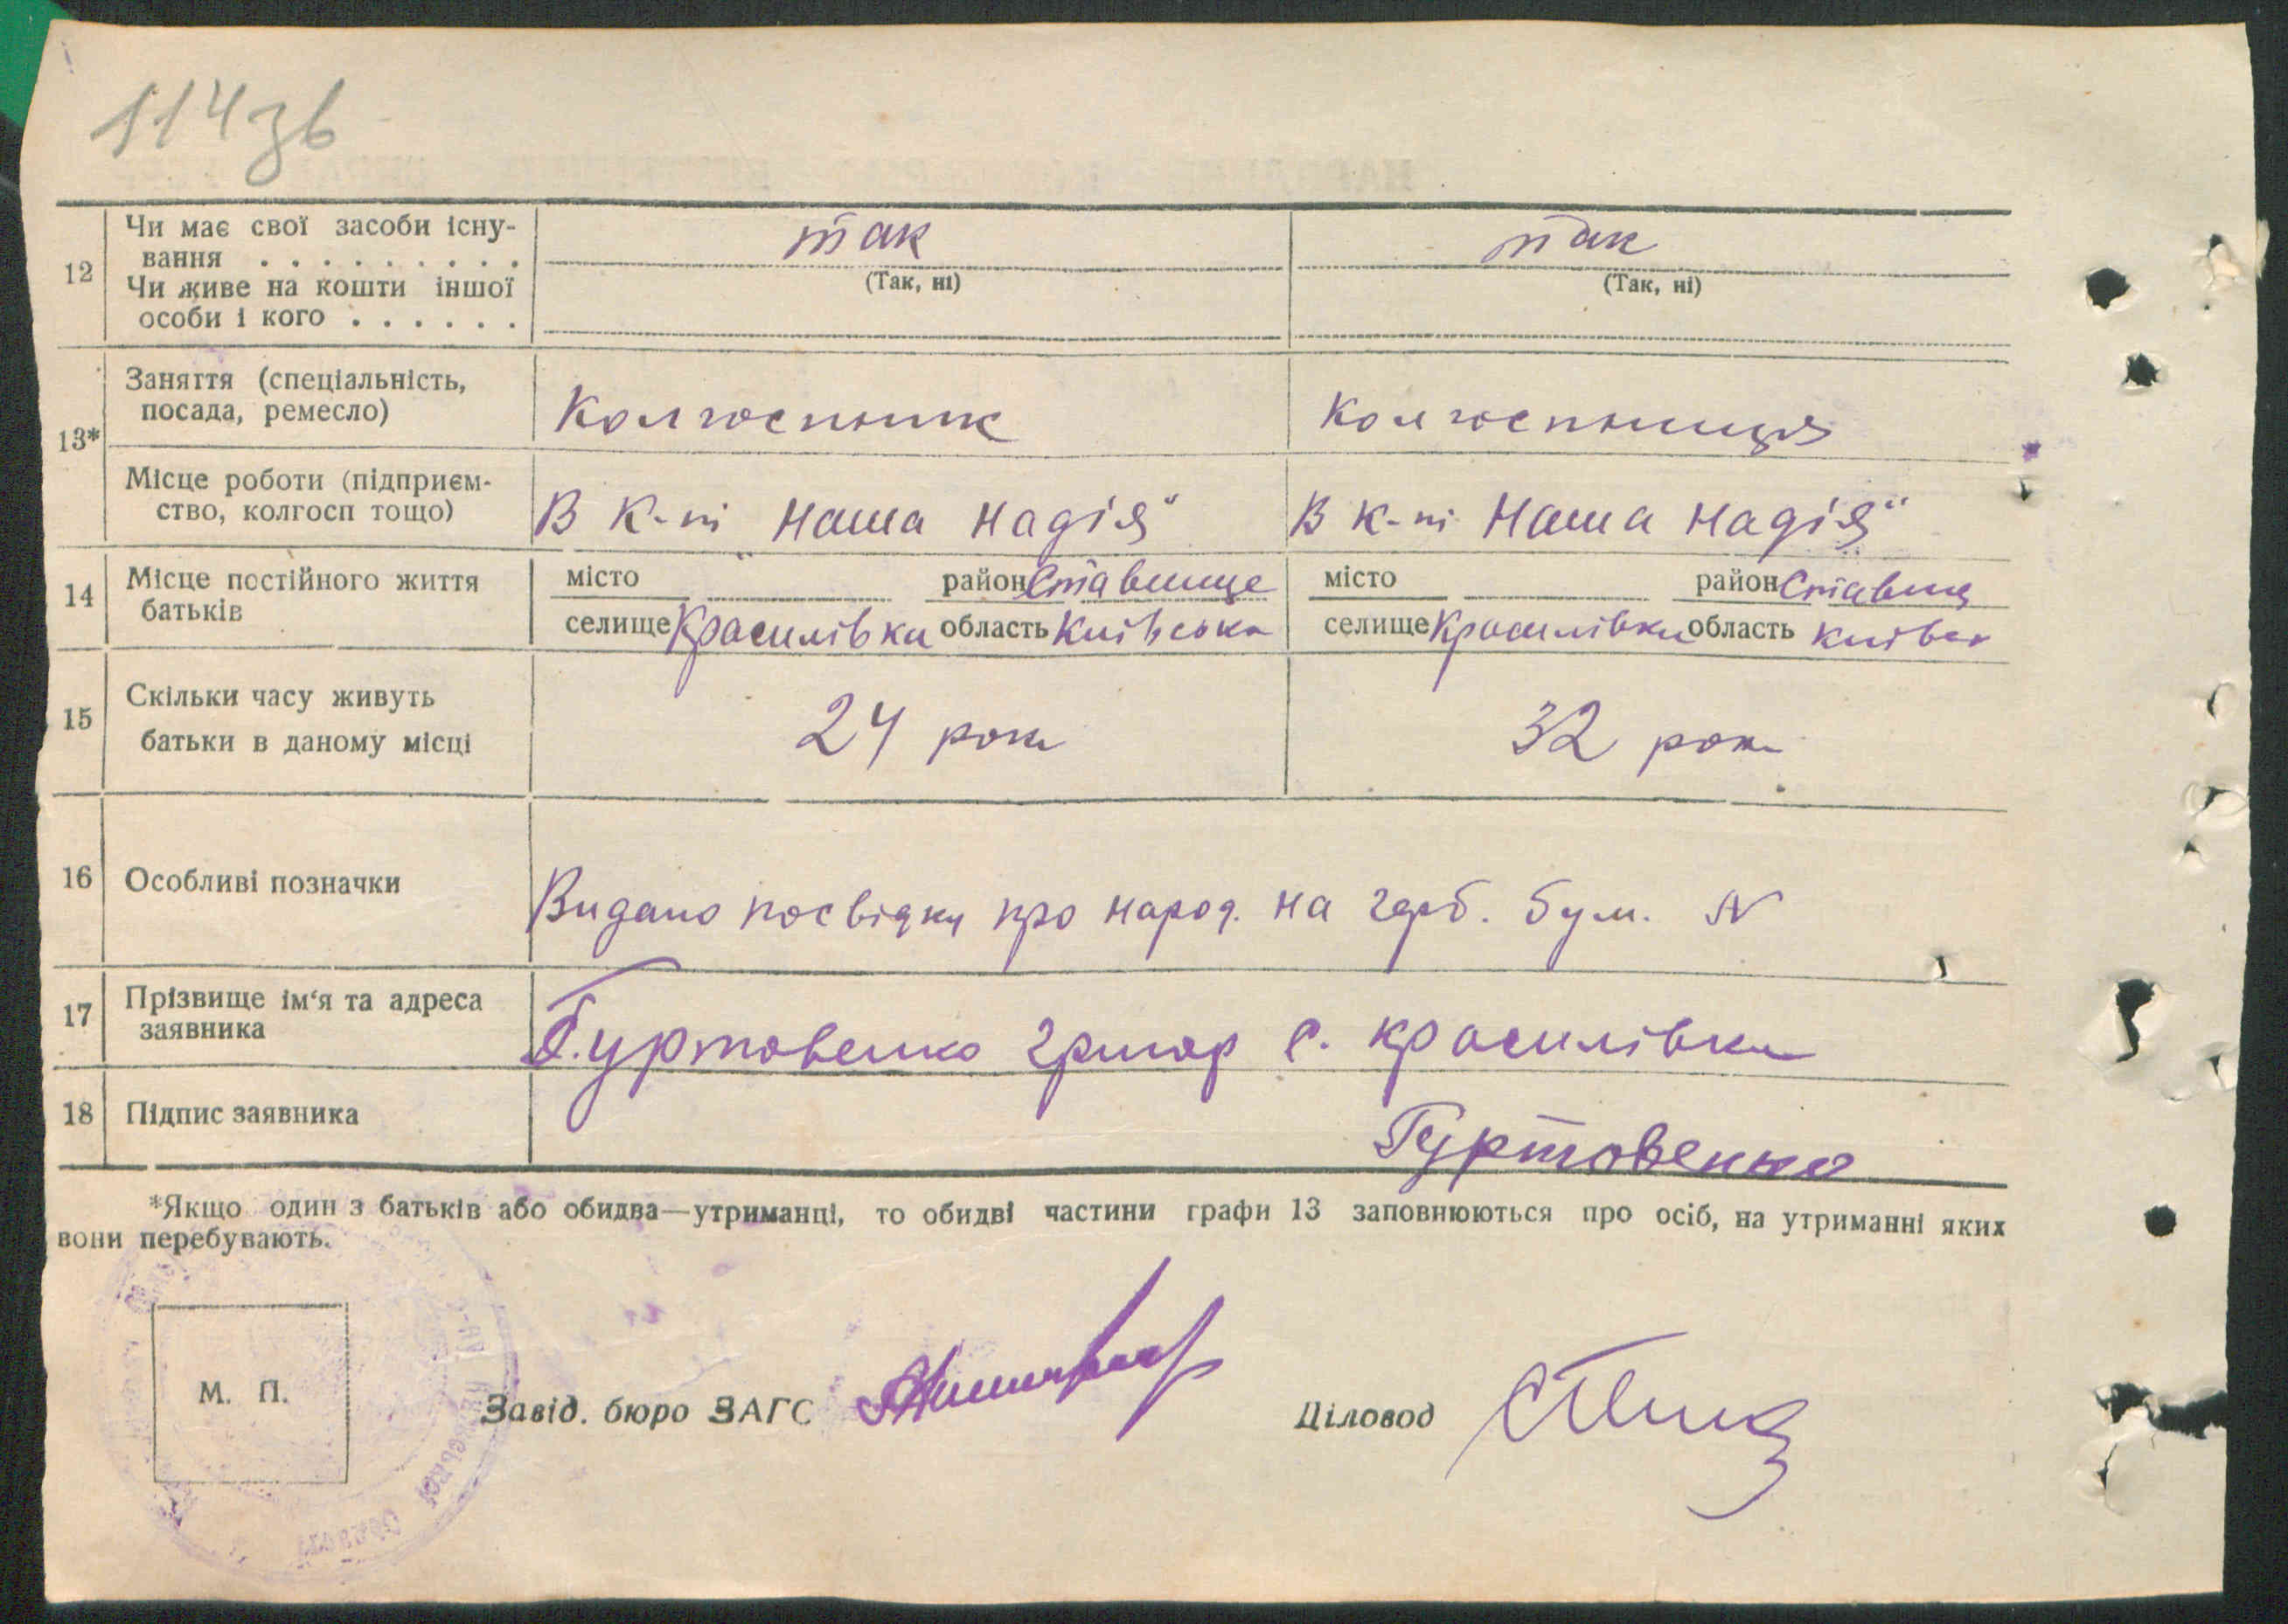 114 зв
12 Чи має свої засоби існу-
вання . . . . . . . . . так так
(Так, ні) (Так, ні)
Чи живе на кошти іншої
особи і кого . . . . . .
13* Заняття (спеціальність,
посада, ремесло) Колгоспник Колгоспниця
Місце роботи (підприєм-
ство, колгосп тощо) В к-пі „Наша Надія“ В к-пі Наша Надія“
14 Місце постійного життя
батьків
місто район Ставище місто район Ставищ
селище Красилівка область Київська селище Красилівка область Київськ
15 Скільки часу живуть
батьки в даному місці 24 роки 32 роки
16 Особливі позначки Видано посвідку про народ. на герб. бум. N
17 Прізвище ім‘я та адреса
заявника Гуртовенко Григор с. Красилівка
18 Підпис заявника Гуртовенко
*Якщо один з батьків або обидва—утриманці, то обидві частини графи 13 заповнюються про осіб, на утриманні яких
вони перебувають.
М. П.
Завід. бюро ЗАГС Діловод